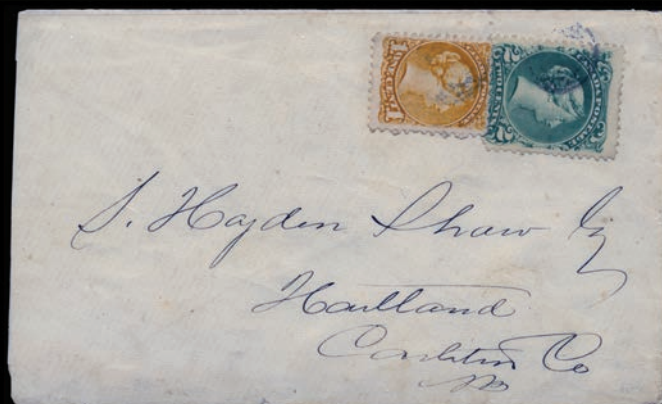 S. Hayden Shaw Esq
Hartland
Carleton Co